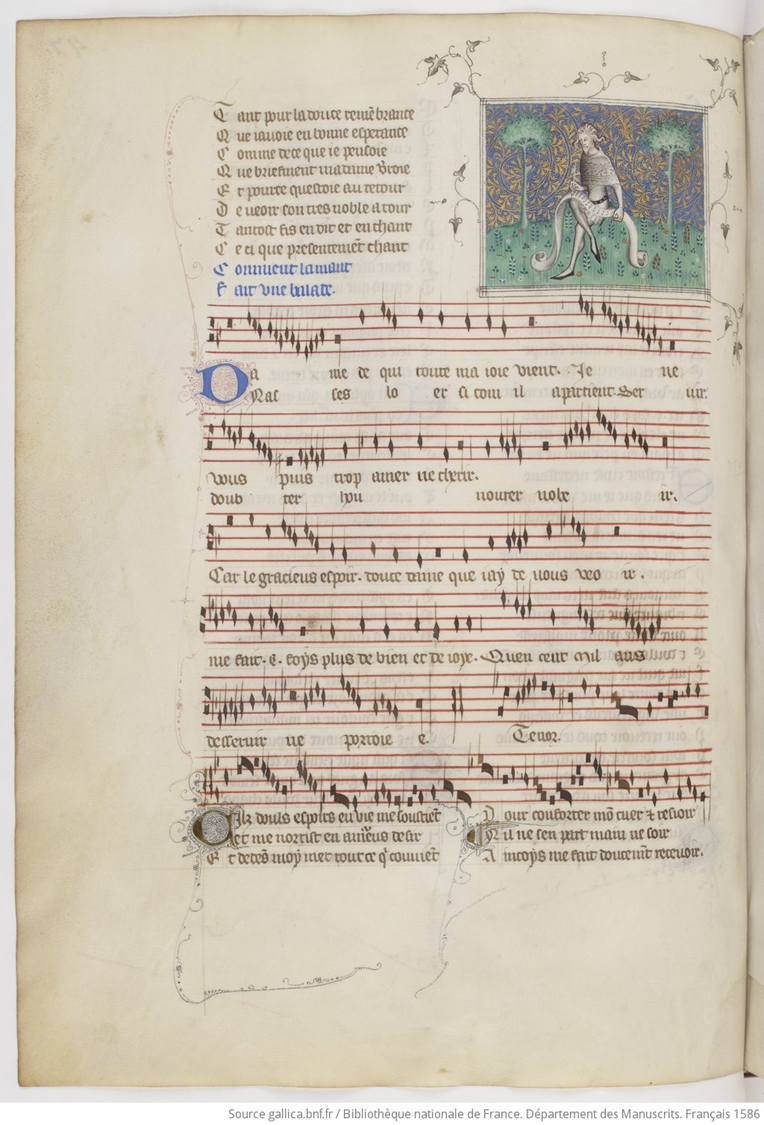 Tant pour la douce remẽbrance
Que iauoie en bonne esperance
Comme de ce que ie pensoie
Que briefment ma dame veroie
Et pour ce questoie au retour
De ueoir son tres noble atour
Tantost fis en dit et en chant
Ce ci que presentemẽt chant
Comment lamant
Fait vne balade.
Dame de qui toute ma ioie vient. Je ne
Nas ses lo er si com il apartient. Ser uir.
vous puis trop amer ne chérir.
doub ter hou nourer uobe ir.
Car le gracieus espoir. douce dame que iay de uous veo ir.
me fait. c. foys plus de bien et de ioye. Quen cent mil ans
desseruir ne porroie e. Tenor.
Cilz douls espoirs en vie me soustiẽt
et me norrist en am̃eus desir
Et dedẽs moy met tout ce q̃ couuiẽt
Pour conforter mõ cuer & resioir
N il ne sen part main ne soir
Aincoys me fait doucemẽt receuoir.
Source gallica.bnf.fr / Bibliothèque nationale de France. Département des Manuscrits. Français 1586